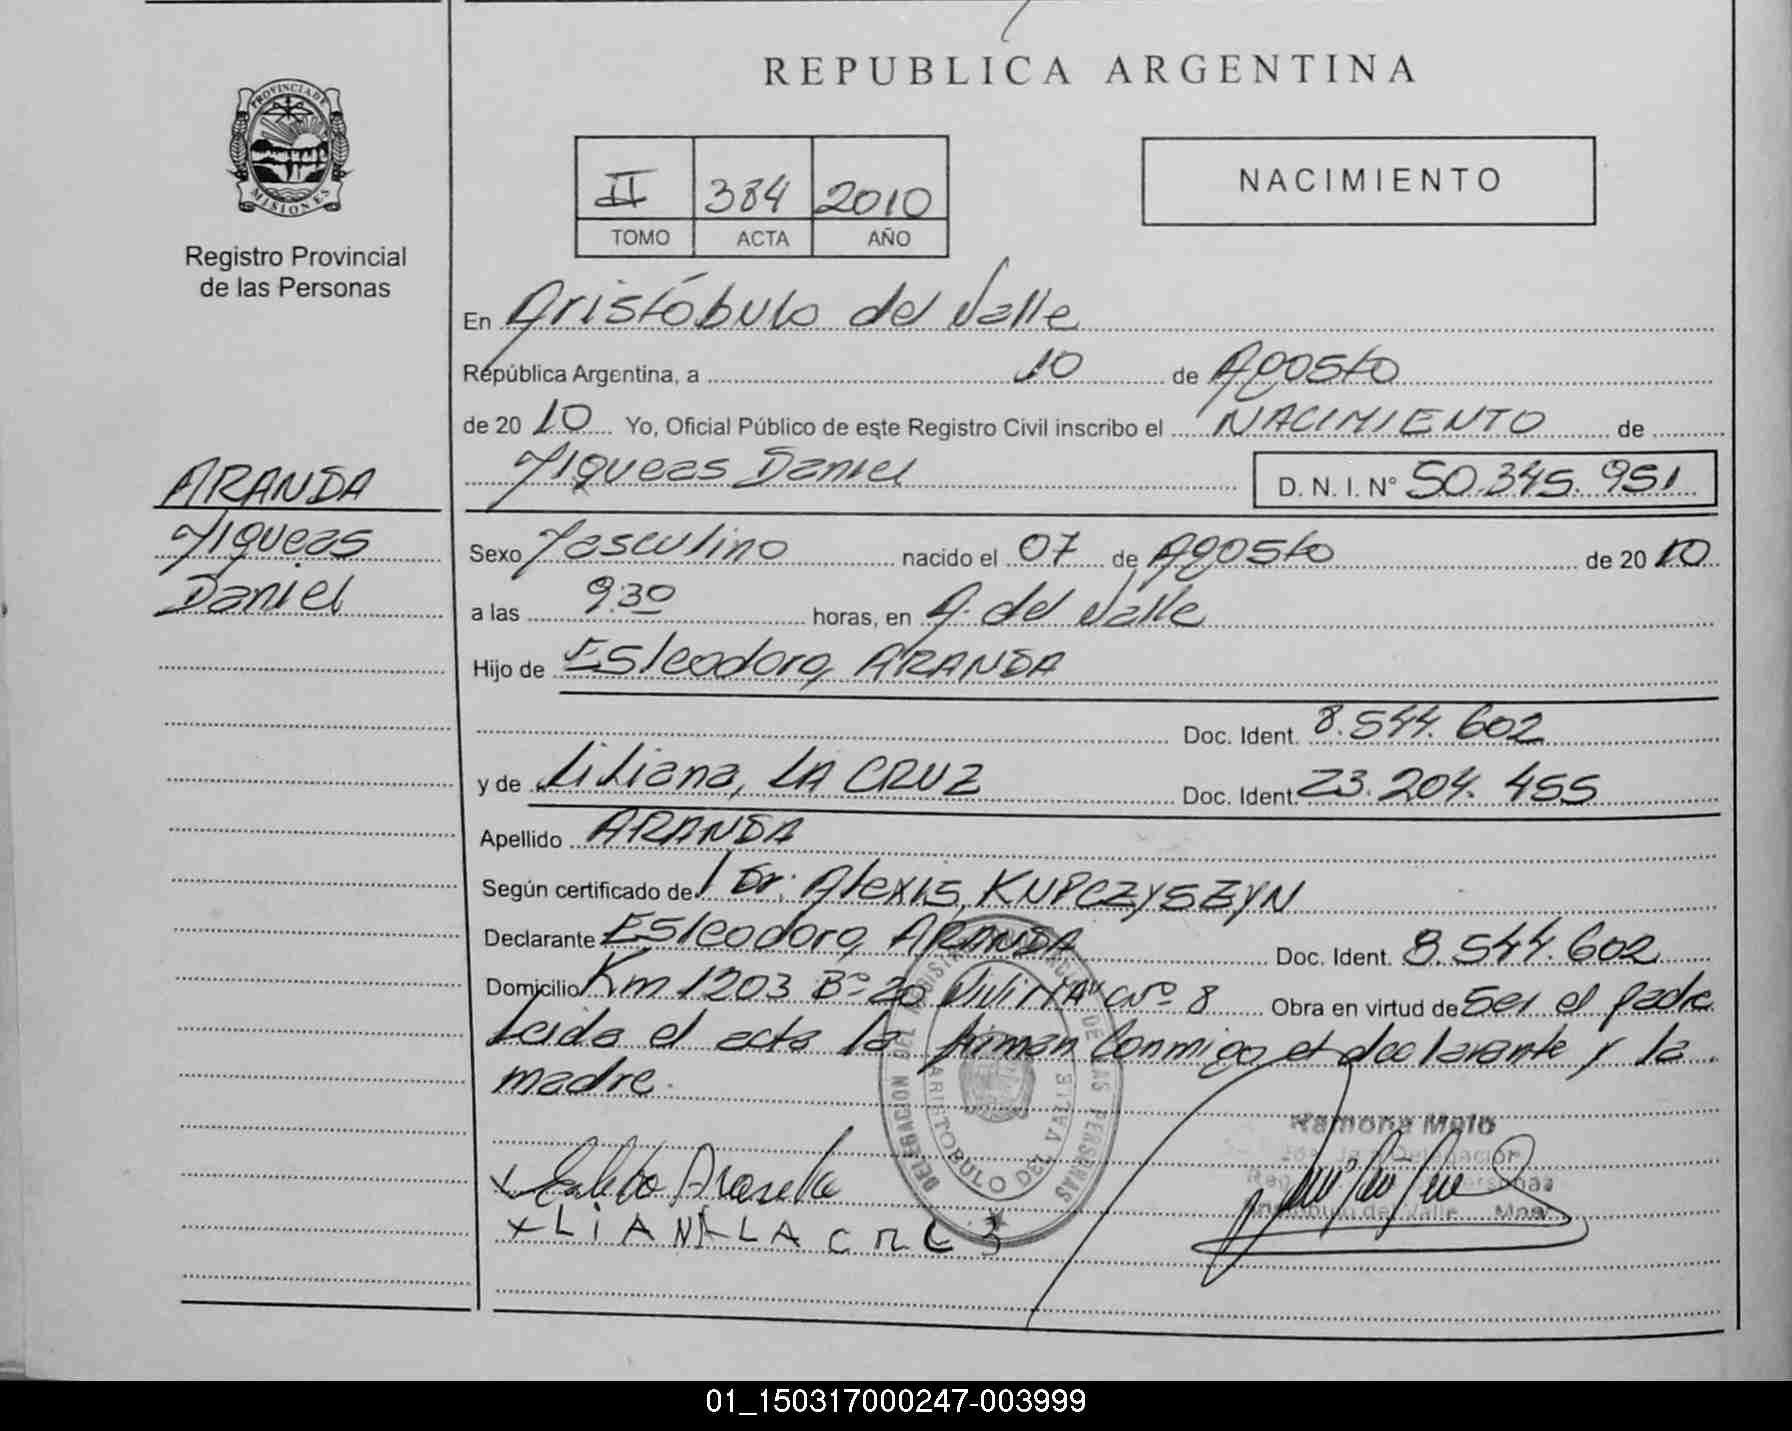 REPUBLICA ARGENTINA
PROVINCIA DE
MISIONES
Registro Provincial
de las Personas
II 384 2010
TOMO ACTA AÑO
NACIMIENTO
En Aristóbulo del Valle
República Argentina, a 10 de Agosto
de 20 10 Yo, Oficial Público de este Registro Civil inscribo el NACIMIENTO de
Miqueas Daniel D. N. I. N° 50.345.951
ARANDA
Miqueas
Daniel
Sexo Masculino nacido el 07 de Agosto de 20 10
a las 9.30 horas, en A. del Valle
Hijo de Esleodoro, ARANDA
Doc. Ident. 8.544.602
y de Liliana, LA CRUZ Doc. Ident. 23.204.455
Apellido ARANDA
Según certificado de Dr. Alexis, KUPCZYSZYN
Declarante Esleodoro, ARANDA Doc. Ident. 8.544.602
Domicilio Km 1203 B° 20 C N° 8 Obra en virtud de Ser el padre
Leida el acta la firman conmigo el declarante y la
madre.
DELEGACION DEL DE LAS PERSONAS
ARISTOBULO DEL VALLE
Ramona Melo
Aristóbulo del Valle
x LiANA LA CRU3
01_150317000247-003999